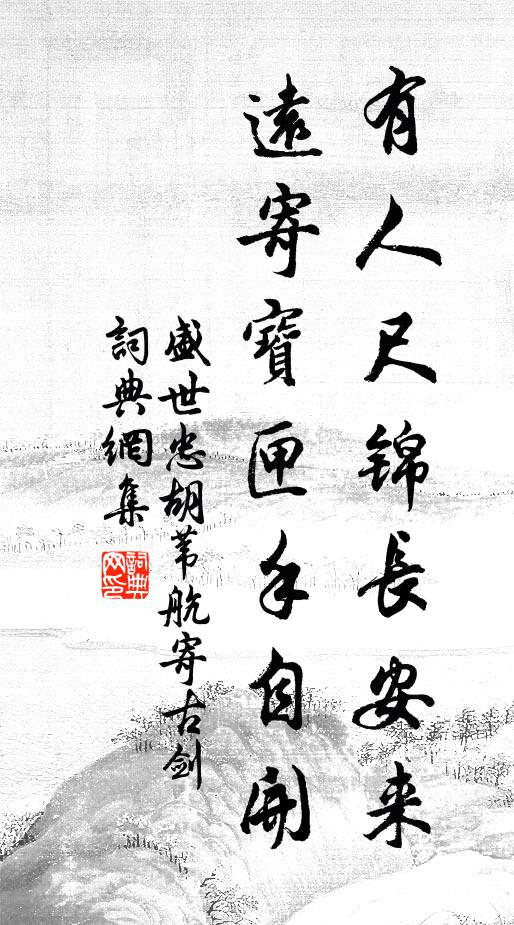 有人尺錦長安来
遠寄寶匣手自開
盛世忠胡葦航寄古劍
詞典網集
詞典网印